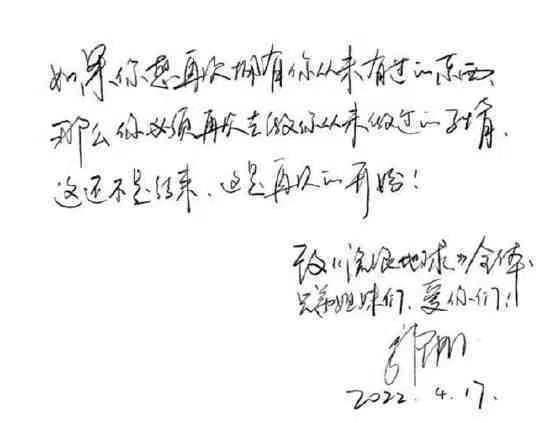 如果你想再次拥有你从来有过的东西,
那么你必须再次去做你从来做过的事情.
这还不是结束、这是再次的开始!
致《流浪地球》全体、
兄弟姐妹们、爱你们!
2022.4.17.